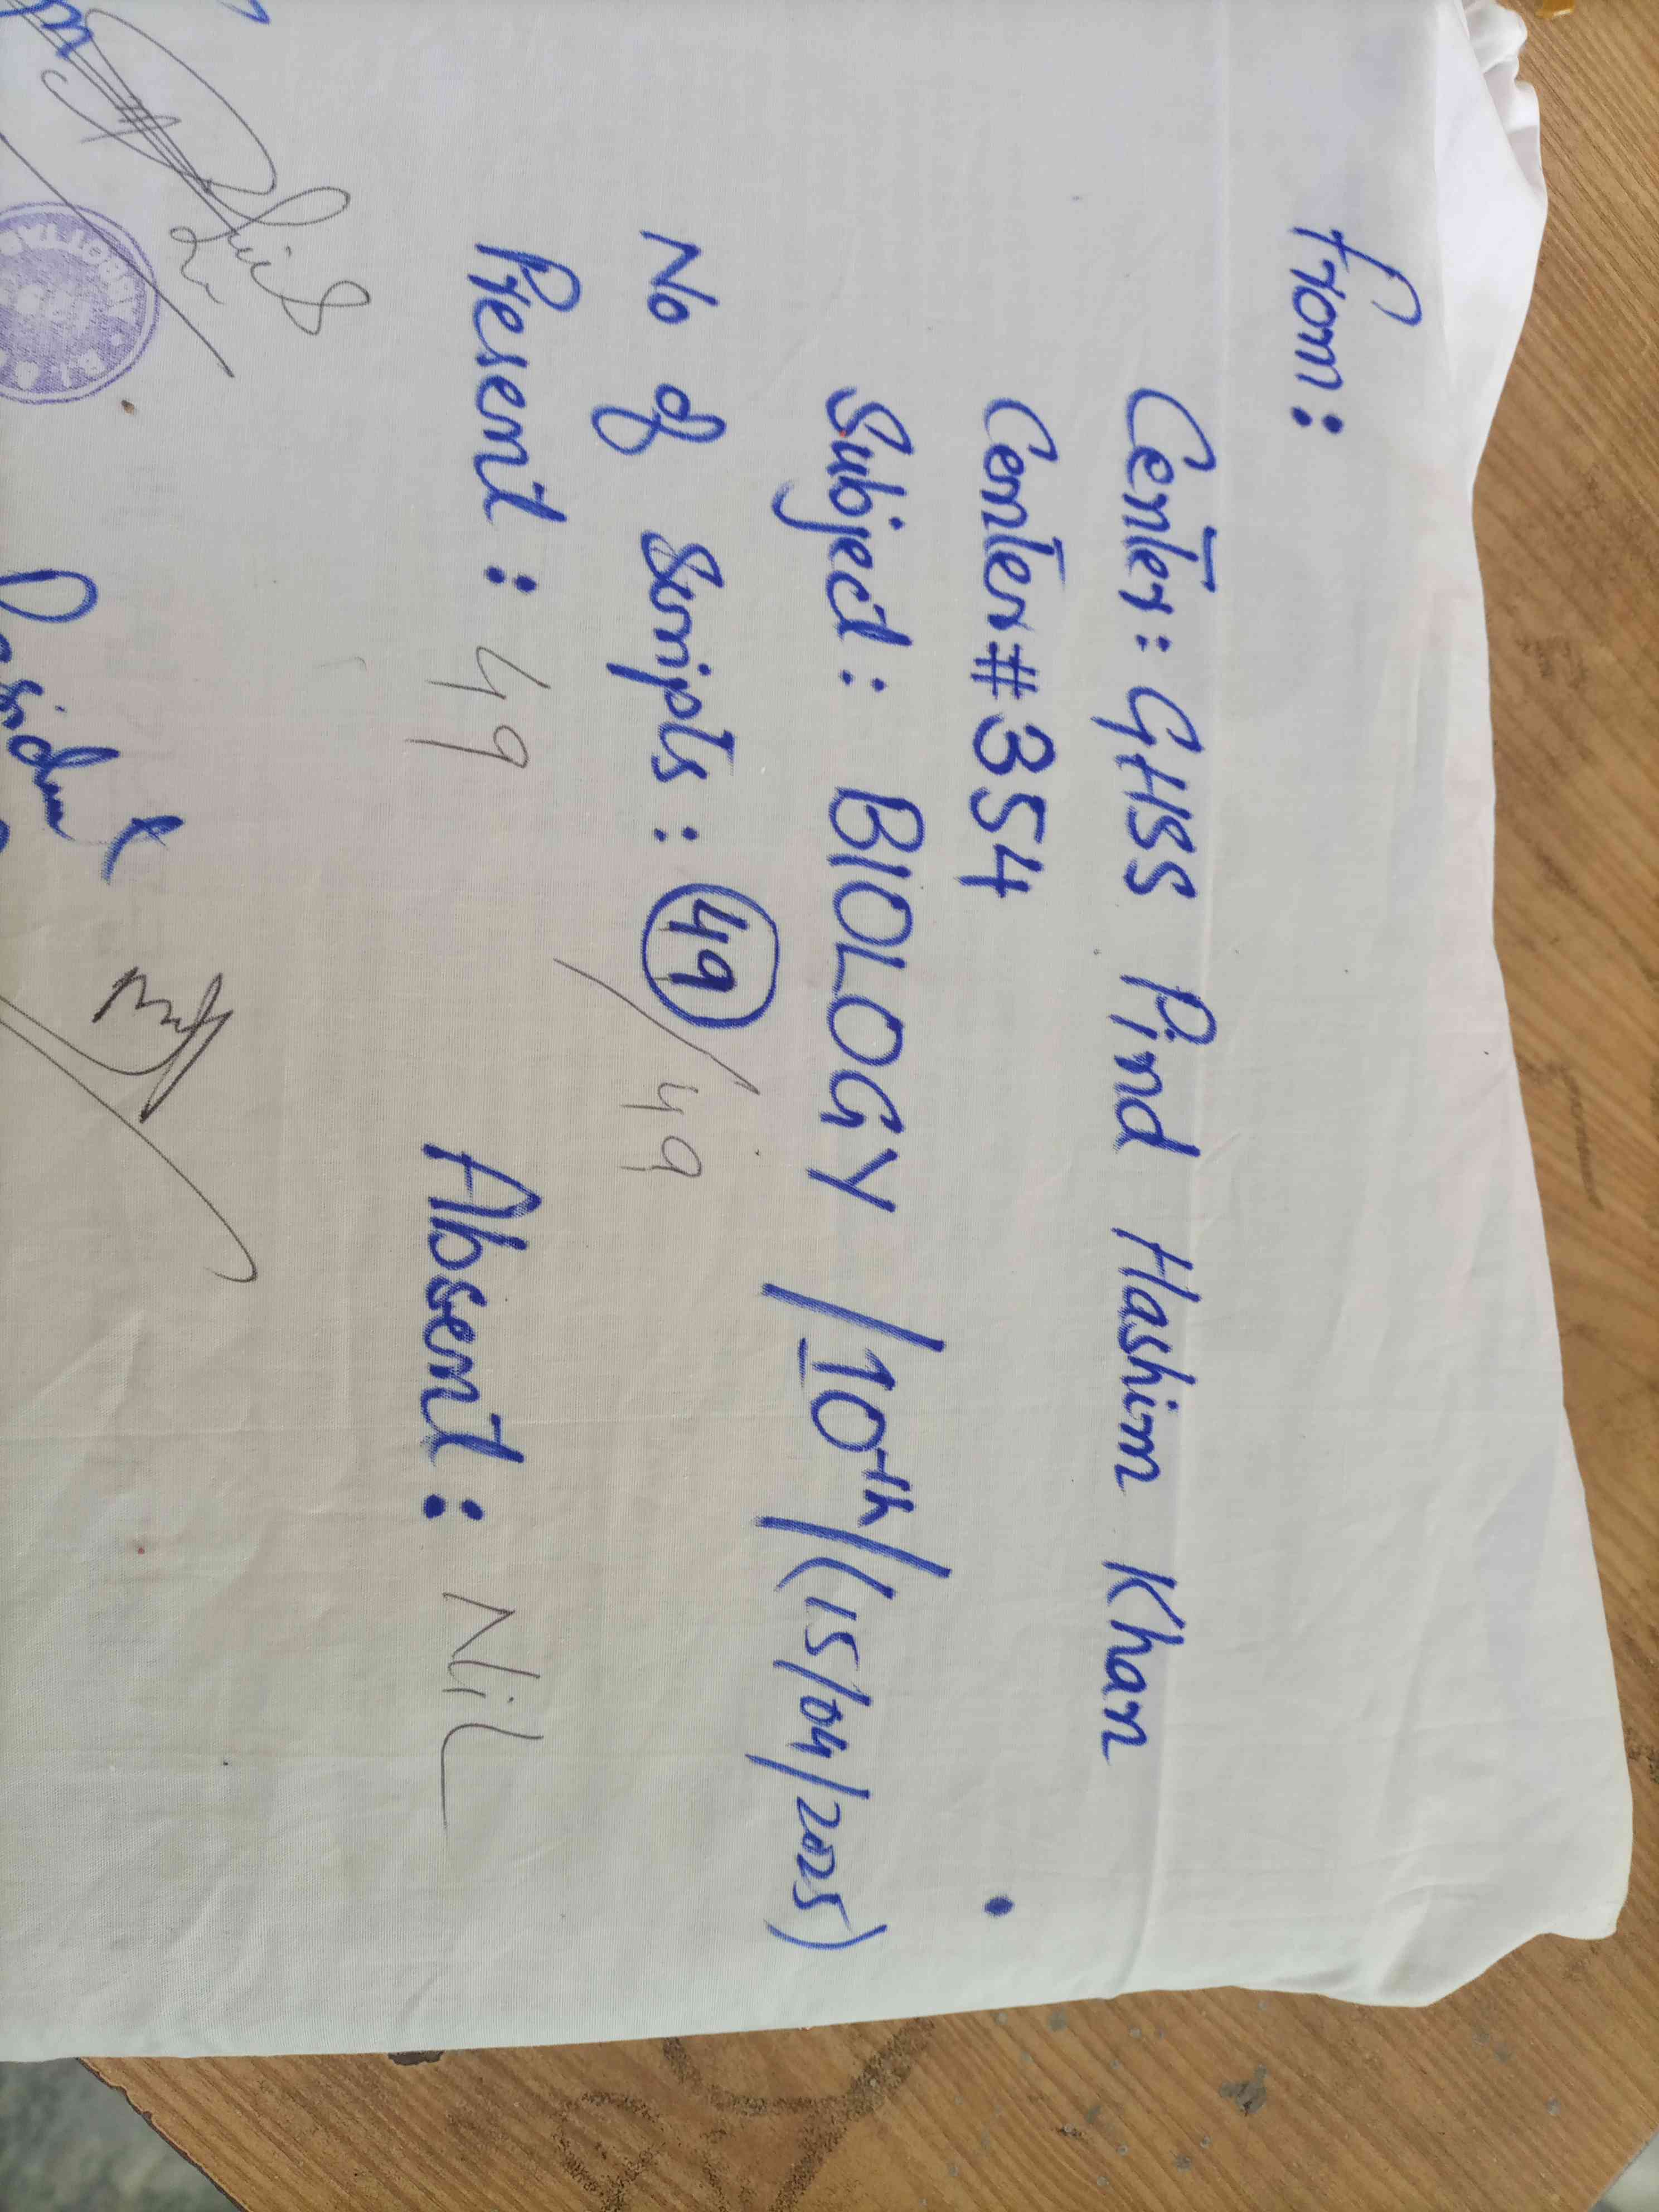 From:
Center: GHSS Pind Hashim Khan
Center # 354
Subject: BIOLOGY /10th/(15/04/2025)
No of Scripts: 49/49
Present: 49 Absent: NiL